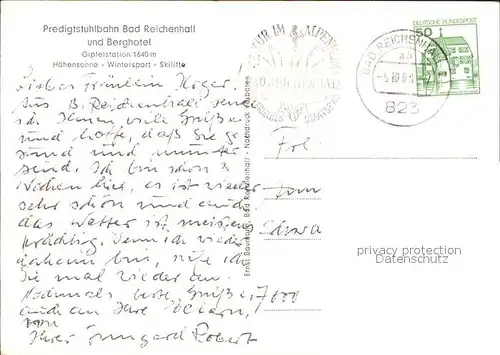 Predigtstuhlbahn Bad Reichenhall
und Berghotel
Gipfelstation 1640 m
Höhensonne - Wintersport - Skilifte
Liebes Fräulein Höger!
Aus B. Reichenhall sende
ich Ihnen viele Grüße
und hoffe, daß Sie ge
sund und munter
send. Ich bin schon 3
Wochen hier, es ist wieder
sehr schön und auch
das Wetter ist meistens
prächtig. Wenn ich wieder
daheim bin, rufe ich
Sie mal wieder an.
Nochmals herzl. Grüße,
auch an Ihre Eltern,
Ihre Irmgard Robert
Ernst Baumann, Bad Reichenhall - Nachdruck verboten
BAD REICHENHALL
823
DEUTSCHE BUNDESPOST
50
Frl.
7000
privacy protection
Datenschutz